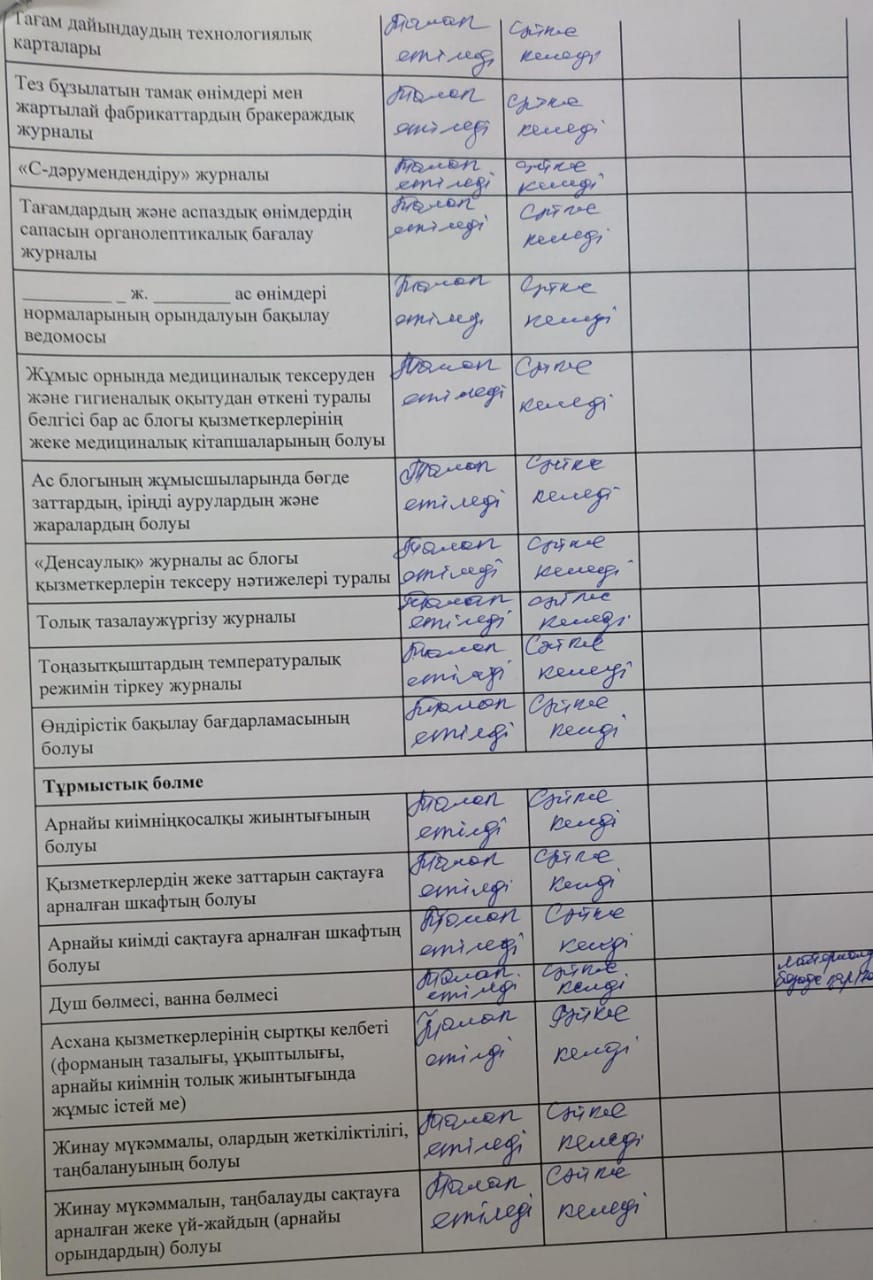 Тағам дайындаудың технологиялық Талап Сәйке
карталары етіледі келеді
Тез бұзылатын тамақ өнімдері мен Талап Сәйке
жартылай фабрикаттардың бракераждық етіледі келеді
журналы
«С-дәрумендендіру» журналы Талап сәйке
етіледі келеді
Тағамдардың және аспаздық өнімдердің Талап Сәйке
сапасын органолептикалық бағалау етіледі келеді
журналы
__________ _ ж. _________ ас өнімдері Талап Сәйке
нормаларының орындалуын бақылау етіледі келеді
ведомосы
Жұмыс орнында медициналық тексеруден Талап Сәйке
және гигиеналық оқытудан өткені туралы етіледі келеді
белгісі бар ас блогы қызметкерлерінің
жеке медициналық кітапшаларының болуы
Ас блогының жұмысшыларында бөгде Талап Сәйке
заттардың, іріңді аурулардың және етіледі келеді
жаралардың болуы
«Денсаулық» журналы ас блогы Талап Сәйке
қызметкерлерін тексеру нәтижелері туралы етіледі келеді
Толық тазалаужүргізу журналы Талап сәйке
етіледі келеді
Тоңазытқыштардың температуралық Талап Сәйке
режимін тіркеу журналы етіледі келеді
Өндірістік бақылау бағдарламасының Талап Сәйке
болуы етілді келді
Тұрмыстық бөлме
Арнайы киімніңқосалқы жиынтығының Талап Сәйке
болуы етілді келді
Қызметкерлердің жеке заттарын сақтауға Талап Сәйке
арналған шкафтың болуы етілді келді
Арнайы киімді сақтауға арналған шкафтың Талап Сәйке
болуы етіледі келді
Душ бөлмесі, ванна бөлмесі Талап Сәйке
етілді келді
Асхана қызметкерлерінің сыртқы келбеті Талап Сәйке
(форманың тазалығы, ұқыптылығы, етілді келді
арнайы киімнің толық жиынтығында
жұмыс істей ме)
Жинау мүкәммалы, олардың жеткіліктілігі, Талап Сәйке
таңбалануының болуы етіледі келеді
Жинау мүкәммалын, таңбалауды сақтауға Талап Сәйке
арналған жеке үй-жайдың (арнайы етіледі келеді
орындардың) болуы